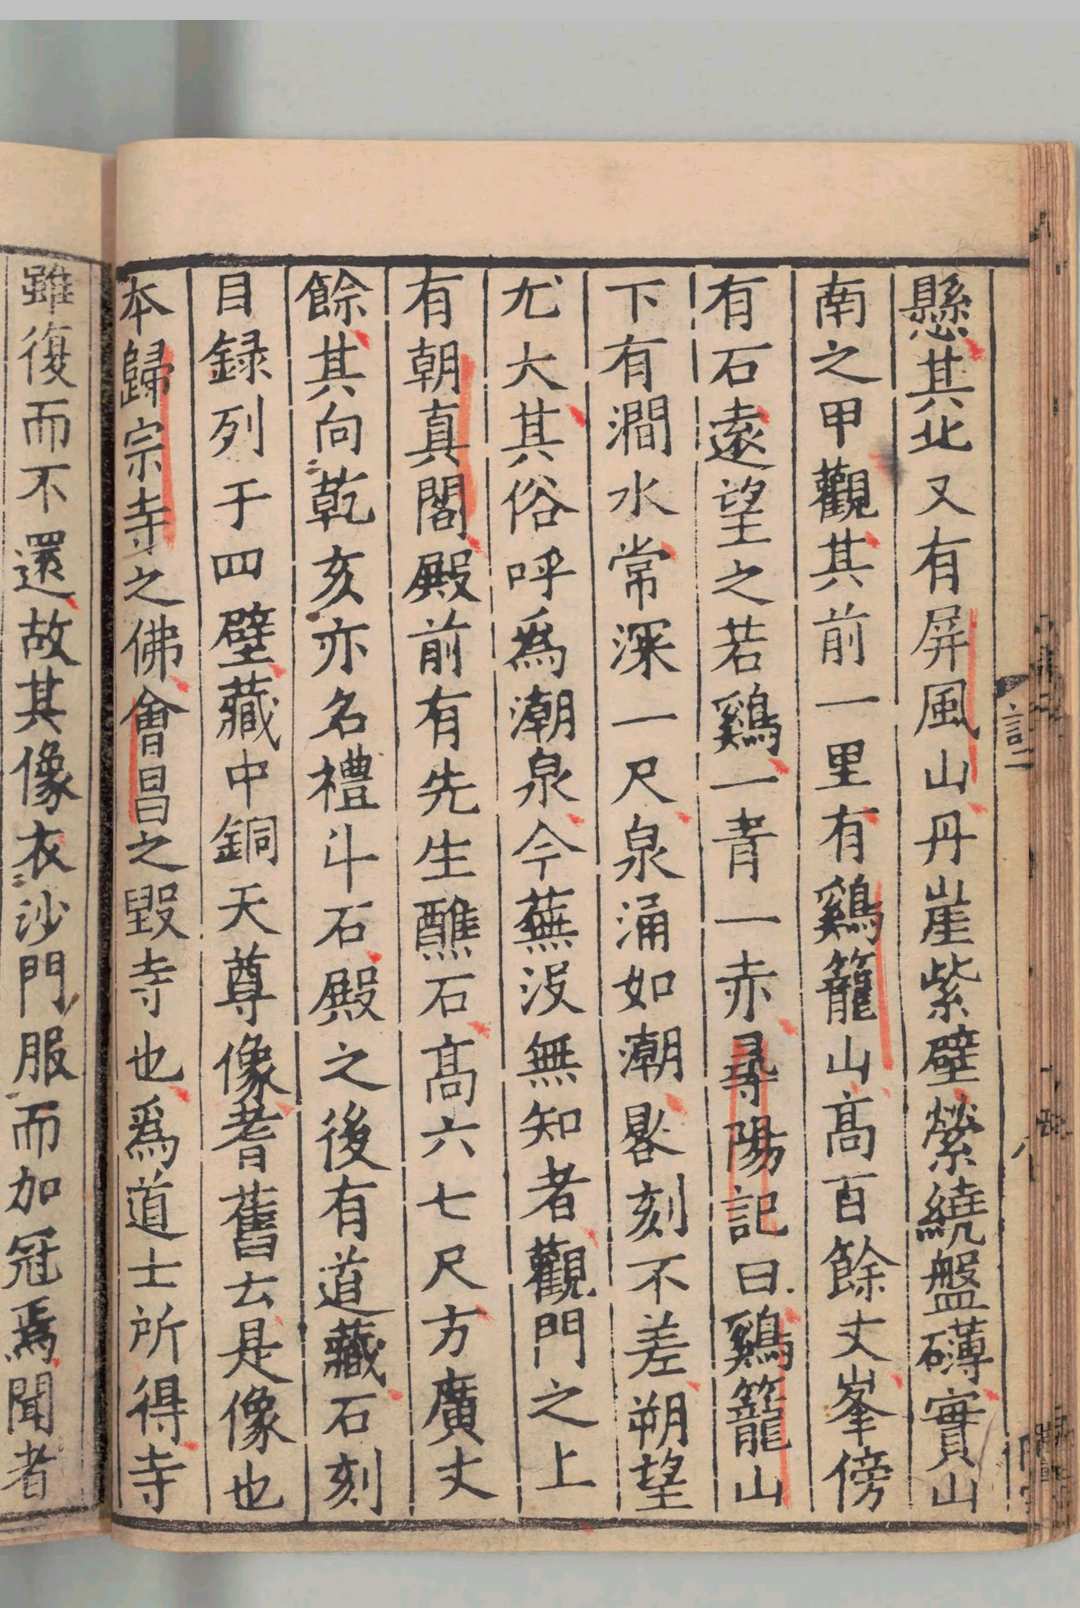 懸其北又有屏風山丹崖紫壁縈繞盤礴實山
南之甲觀其前一里有鷄籠山高百餘丈峯傍
有石遠望之若鷄一青一赤尋陽記曰鷄籠山
下有澗水常深一尺泉涌如潮晷刻不差朔望
尤大其俗呼爲潮泉今蕪没無知者觀門之上
有朝真閣殿前有先生醮石高六七尺方廣丈
餘其向乾亥亦名禮斗石殿之後有道藏石刻
目録列于四壁藏中銅天尊像耆舊云是像也
本歸宗寺之佛會昌之毀寺也爲道士所得寺
雖復而不還故其像衣沙門服而加冠焉聞者
記二
八